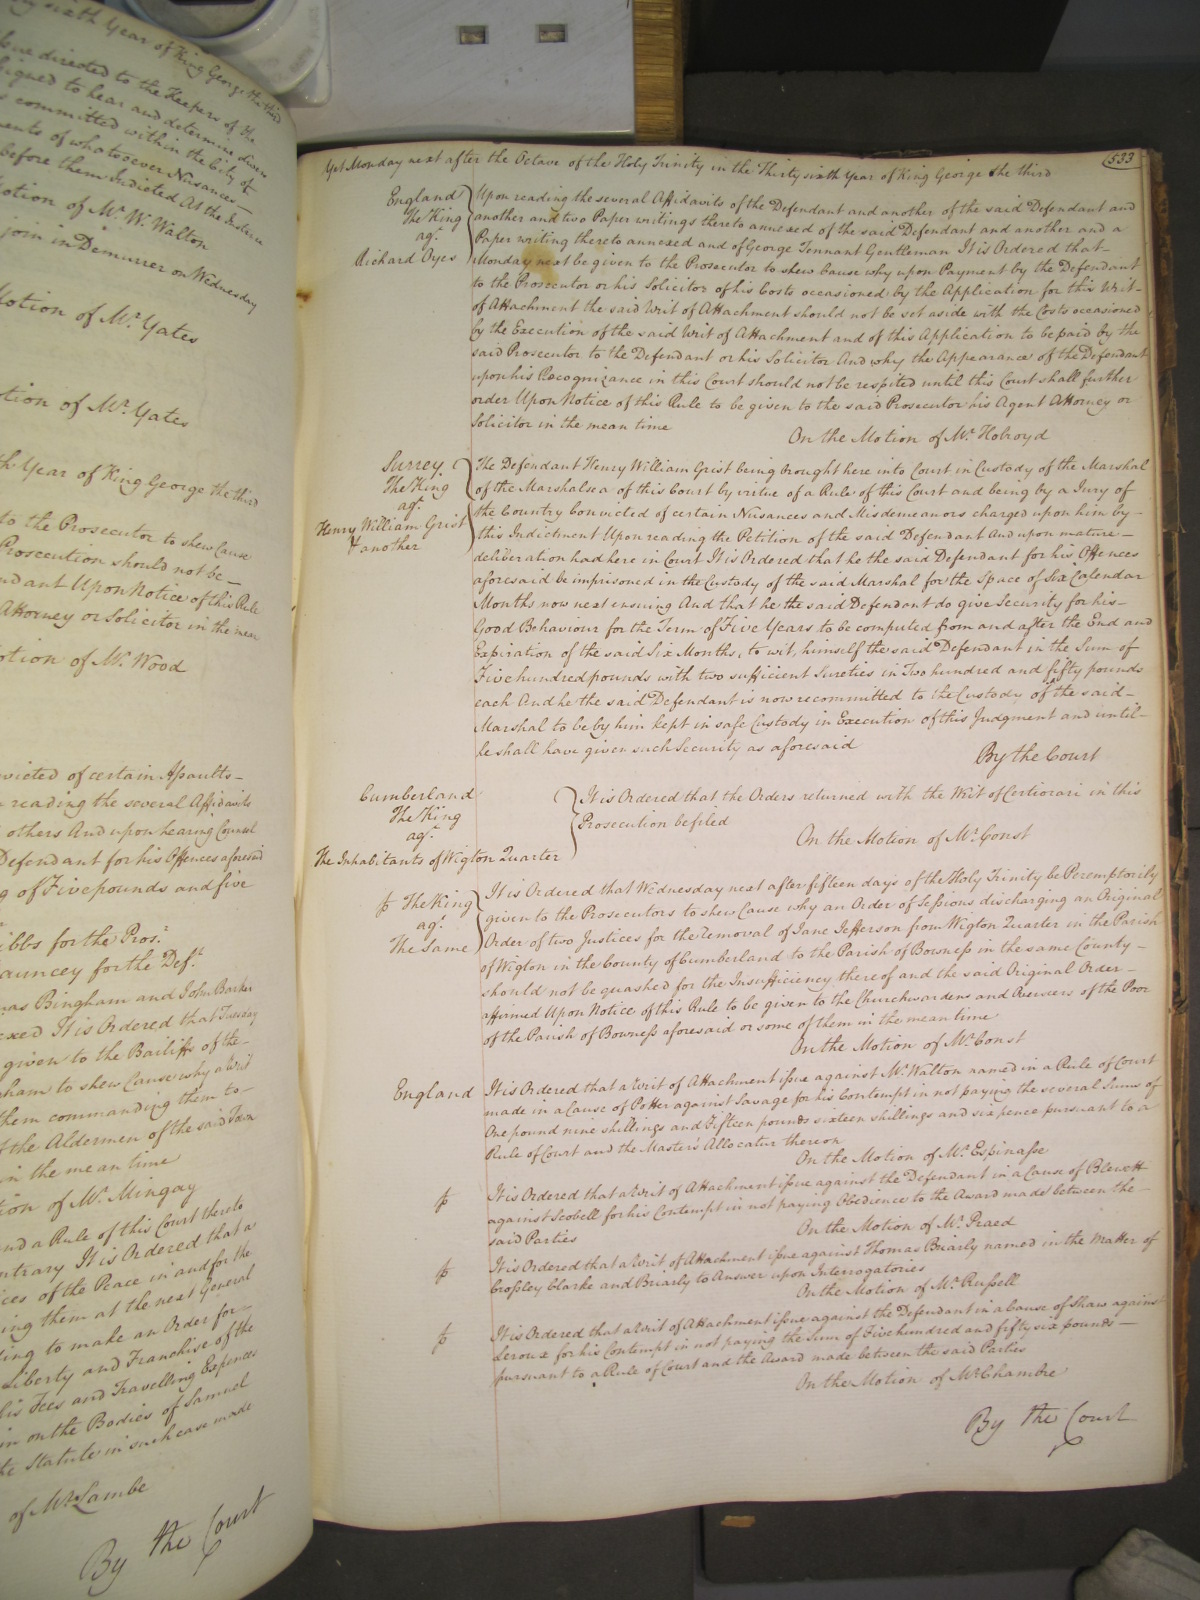 sixth Year of King George the third
directed to the Keepers of the
signed to hear and determine divers
committed within the City of
of whatsoever Nusances
before them Indicted At the Instance
Motion of Mr. W. Walton
join in Demurrer on Wednesday
Motion of Mr. Yates
Motion of Mr. Yates
Year of King George the third
to the Prosecutor to shew Cause
Prosecution should not be
Upon Notice of this Rule
Attorney or Solicitor in the mean
Motion of Mr. Wood
of certain Assaults
reading the several Affidavits
others And upon hearing Counsel
Defendant for his Offences aforesaid
of Five pounds and five
for the Pros.r
for the Def.t
Bingham and John Barker
It is Ordered that Tuesday
given to the Bailiffs of the
to shew Cause why a Writ
them commanding them to
the Aldermen of the said Town
in the mean time
of Mr. Mingay
and a Rule of this Court thereto
It is Ordered that a
of the Peace in and for the
them at the next General
to make an Order for
Liberty and Franchise of the
his Fees and Travelling Expences
on the Bodies of Samuel
the Statute in such case made
of Mr. Lambe
By the Court
533
Yet Monday next after the Octave of the Holy Trinity in the Thirty sixth Year of King George the third
England
The King
agt.
Richard Oyes
Upon reading the several Affidavits of the Defendant and another of the said Defendant and
another and two Paper writings thereto annexed of the said Defendant and another and a
Paper writing thereto annexed and of George Tennant Gentleman It is Ordered that
Monday next be given to the Prosecutor to shew Cause why upon Payment by the Defendant
to the Prosecutor or his Solicitor of his Costs occasioned by the Application for this Writ
of Attachment the said Writ of Attachment should not be set aside with the Costs occasioned
by the Execution of the said Writ of Attachment and of this Application to be paid by the
said Prosecutor to the Defendant or his Solicitor And why the Appearance of the Defendant
upon his Recognizance in this Court should not be respited until this Court shall further
order Upon Notice of this Rule to be given to the said Prosecutor his Agent Attorney or
Solicitor in the mean time
On the Motion of Mr. Holroyd
Surrey
The King
agt.
Henry William Grist
& another
The Defendant Henry William Grist being brought here into Court in Custody of the Marshal
of the Marshalsea of this Court by virtue of a Rule of this Court and being by a Jury of
the Country Convicted of certain Nusances and Misdemeanors charged upon him by
this Indictment Upon reading the Petition of the said Defendant And upon mature
deliberation had here in Court It is Ordered that he the said Defendant for his Offences
aforesaid be imprisoned in the Custody of the said Marshal for the Space of Six Calendar
Months now next ensuing And that he the said Defendant do give Security for his
Good Behaviour for the Term of Five Years to be computed from and after the End and
Expiration of the said Six Months, to wit, himself the said Defendant in the Sum of
Five hundred pounds with two sufficient Sureties in Two hundred and fifty pounds
each And he the said Defendant is now recommitted to the Custody of the said
Marshal to be by him kept in safe Custody in Execution of this Judgment and until
he shall have given such Security as aforesaid
By the Court
Cumberland
The King
agt.
The Inhabitants of Wigton Quarter
It is Ordered that the Orders returned with the Writ of Certiorari in this
Prosecution be filed
On the Motion of Mr. Const
The King
agt.
The Same
It is Ordered that Wednesday next after fifteen days of the Holy Trinity be Peremptorily
given to the Prosecutors to shew Cause why an Order of Sessions discharging an Original
Order of two Justices for the removal of Jane Jefferson from Wigton Quarter in the Parish
of Wigton in the County of Cumberland to the Parish of Bowness in the same County
should not be quashed for the Insufficiency thereof and the said Original Order
affirmed Upon Notice of this Rule to be given to the Churchwardens and Overseers of the Poor
of the Parish of Bowness aforesaid or some of them in the mean time
On the Motion of Mr. Const
England
It is Ordered that a Writ of Attachment issue against Mr. Walton named in a Rule of Court
made in a Cause of Potter against Savage for his Contempt in not paying the several Sums of
One pound nine shillings and Fifteen pounds sixteen shillings and six pence pursuant to a
Rule of Court and the Master's Allocatur thereon
On the Motion of Mr. Espinasse
It is Ordered that a Writ of Attachment issue against the Defendant in a Cause of Blewett
against Scobell for his Contempt in not paying Obedience to the Award made between the
said Parties
On the Motion of Mr. Praed
It is Ordered that a Writ of Attachment issue against Thomas Briarly named in the Matter of
Crossley Clarke and Briarly to Answer upon Interrogatories
On the Motion of Mr. Russell
It is Ordered that a Writ of Attachment issue against the Defendant in a Cause of Shaw against
Leroux for his Contempt in not paying the Sum of Five hundred and fifty six pounds
pursuant to a Rule of Court and the Award made between the said Parties
On the Motion of Mr. Chambre
By the Court